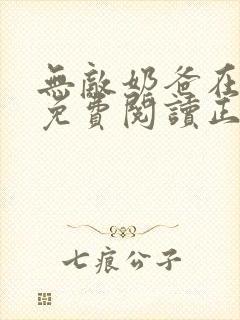 無敵奶爸在
免費閱讀正
七痕公子